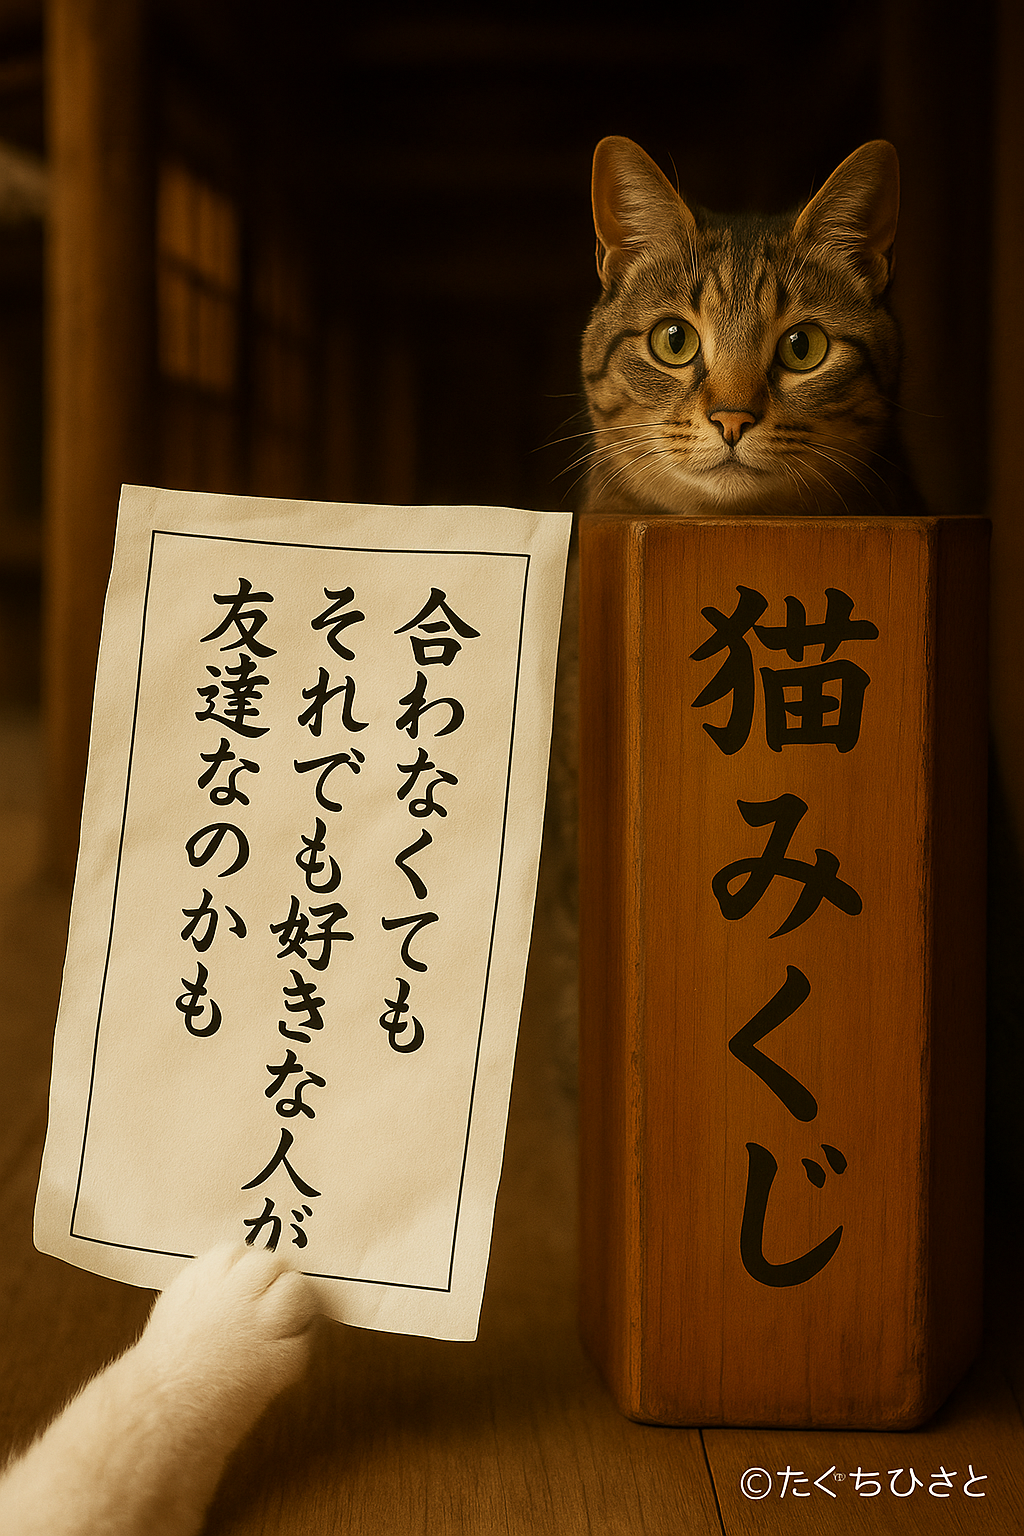 合わなくても
それでも好きな人が
友達なのかも
猫みくじ
©たぐちひさと